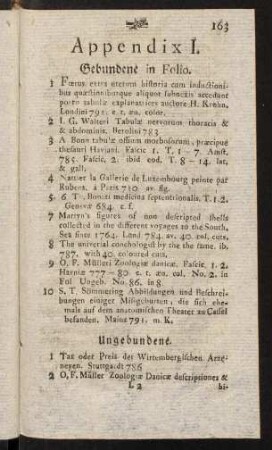 163
Appendix I.
Gebundene in Folio.
1 Fœtus extra uterum historia cum inductioni-
bus quæstionibusque aliquot subnexis accedunt
porro tabulæ explanatrices auctore H. Krohn,
Londini 791. c. t. æn. color.
2 I. G. Walteri Tabulæ nervorum thoracis &
& abdominis. Berolini 783
3 A Bonn tabulæ ossium morbosorum, præcipue
thesauri Hoviani. Fascic. 1. T. 1 — 7. Amst.
785. Fascic. 2. ibid eod. T. 8 — 14. lat.
& gall.
4 Nattier la Gallerie de Luxembourg peinte par
Rubens, à Paris 710 av. fig.
5. 6 T. Boneti medicina septentrionalis. T. 1. 2.
Genevæ 684. c f.
7 Martyn's figures of non descripted shells
collected in the different voyages to the South,
Sea since 1764. Lond 784. av. 40. cul. cuts.
8 The universal conchologist by the the same. ib.
787. with 40. coloured cuts.
9 O. F. Mülleri Zoologiæ danicæ. Fascic. 1. 2.
Havniæ 777 — 80 c. t. æn. col. No. 2. in
Fol Ungeb. No. 86. in 8
10 S. T. Sömmering Abbildungen und Beschrei-
bungen einiger Misgeburten, die sich ehe-
mals auf dem anatomischen Theater zu Cassel
befanden. Mainz 791. m. K.
Ungebundene.
1 Tax oder Preis der Wirtembergischen Arze-
neyen. Stuttgardt 786
2 O. F. Müller Zoologiæ Danicæ descriptiones &
L 2 hi-